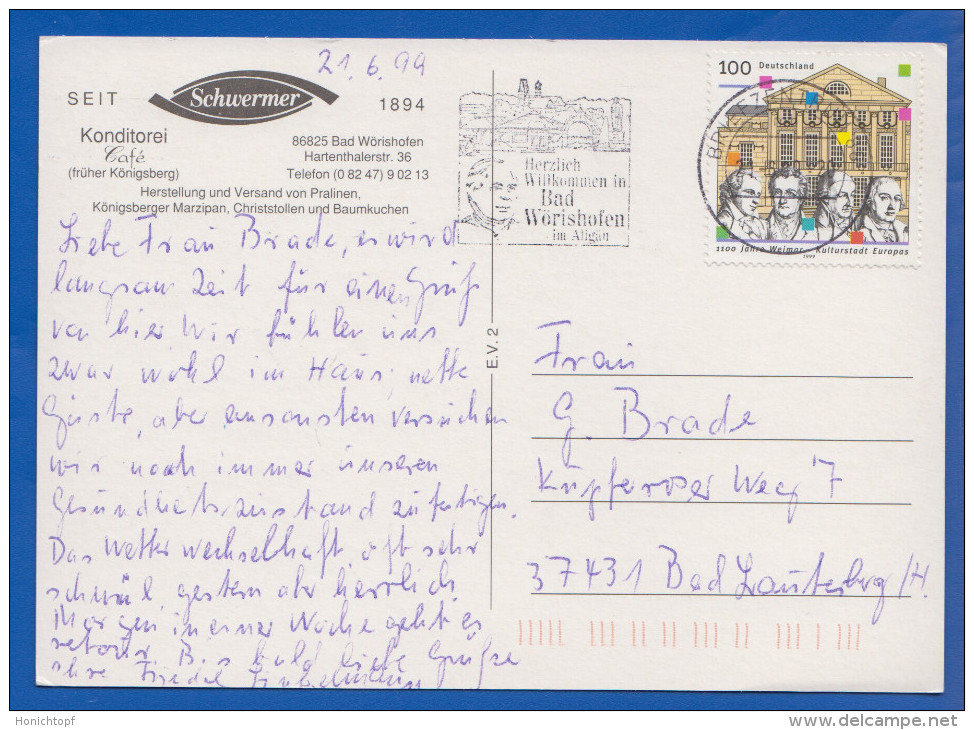 21.6.99
SEIT Schwermer 1894
Konditorei
Café
(früher Königsberg)
86825 Bad Wörishofen
Hartenthalerstr. 36
Telefon (0 82 47) 9 02 13
Herstellung und Versand von Pralinen,
Königsberger Marzipan, Christstollen und Baumkuchen
Liebe Frau Brade, es wird
langsam Zeit für einen Gruß
von hier. Wir fühlen uns
zwar wohl im Haus, nette
Gäste, aber ansonsten versuchen
wir noch immer unseren
Gesundheitszustand zu festigen.
Das Wetter wechselhaft, oft sehr
schwül, gestern aber herrlich.
Morgen in einer Woche geht es
retour. Bis bald liebe Grüße
Ihre Friedel
E.V. 2
Herzlich
Willkommen in
Bad
Wörishofen
im Allgäu
100 Deutschland
1100 Jahre Weimar - Kulturstadt Europas
1999
Frau
G. Brade
Kupferoser Weg 7
37431 Bad Lauterberg/H.
Honichtopf
delcampe.net